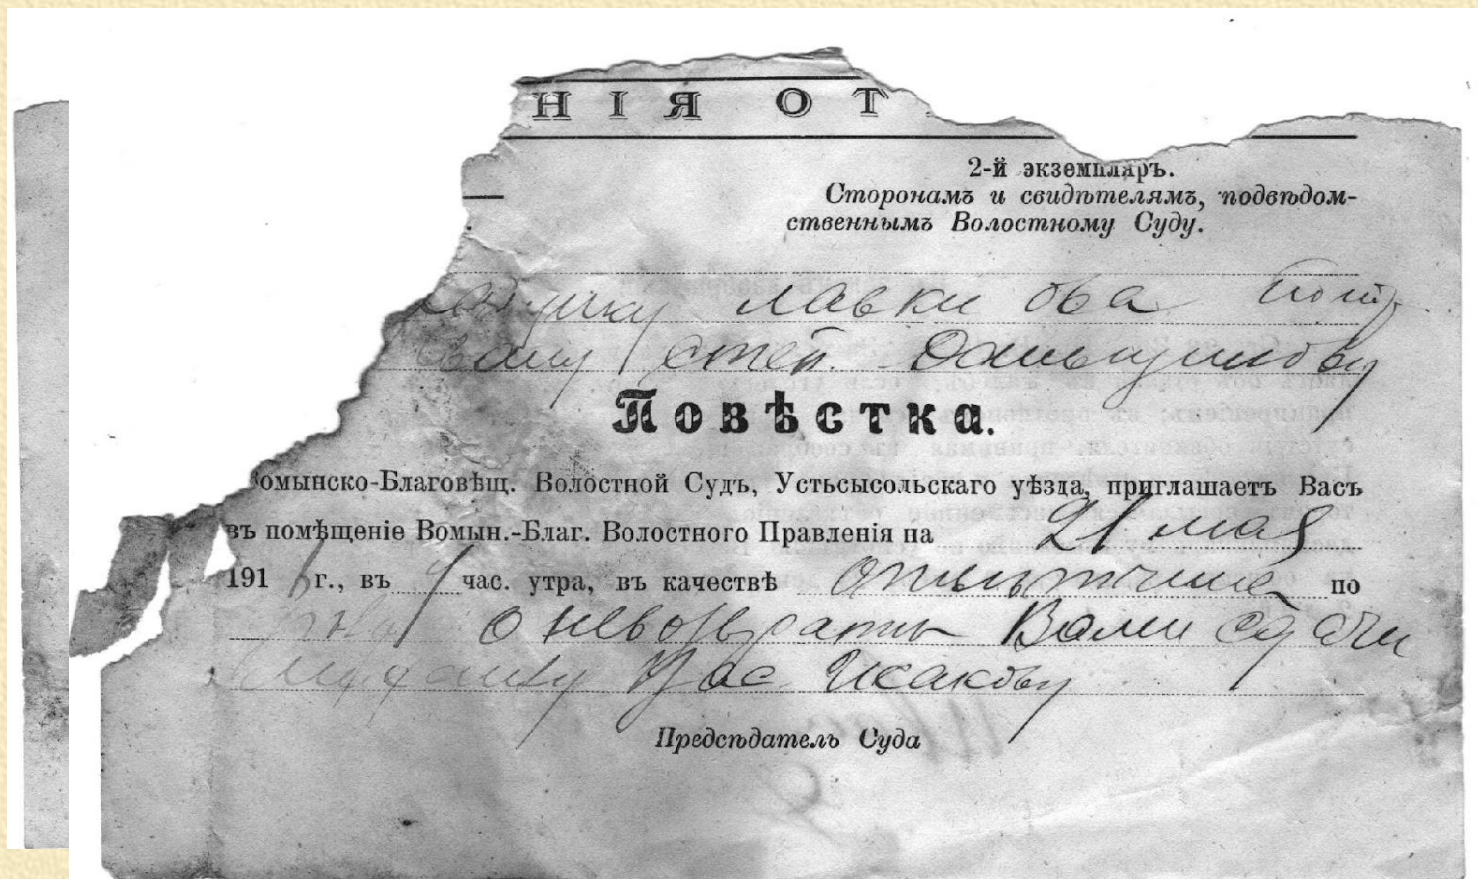 НІЯ ОТ
2-й экземпляръ.
Сторонамъ и свидѣтелямъ, подвѣдом-
ственнымъ Волостному Суду.
лавки ова
Степ.
Повѣстка.
Вомынско-Благовѣщ. Волостной Судъ, Устьсысольскаго уѣзда, приглашаетъ Васъ
въ помѣщеніе Вомын.-Благ. Волостного Правленія на 21 мая
191 г., въ 9 час. утра, въ качествѣ отвѣтчика по
о невозвратѣ Вами сдачи
Исакову
Предсѣдатель Суда